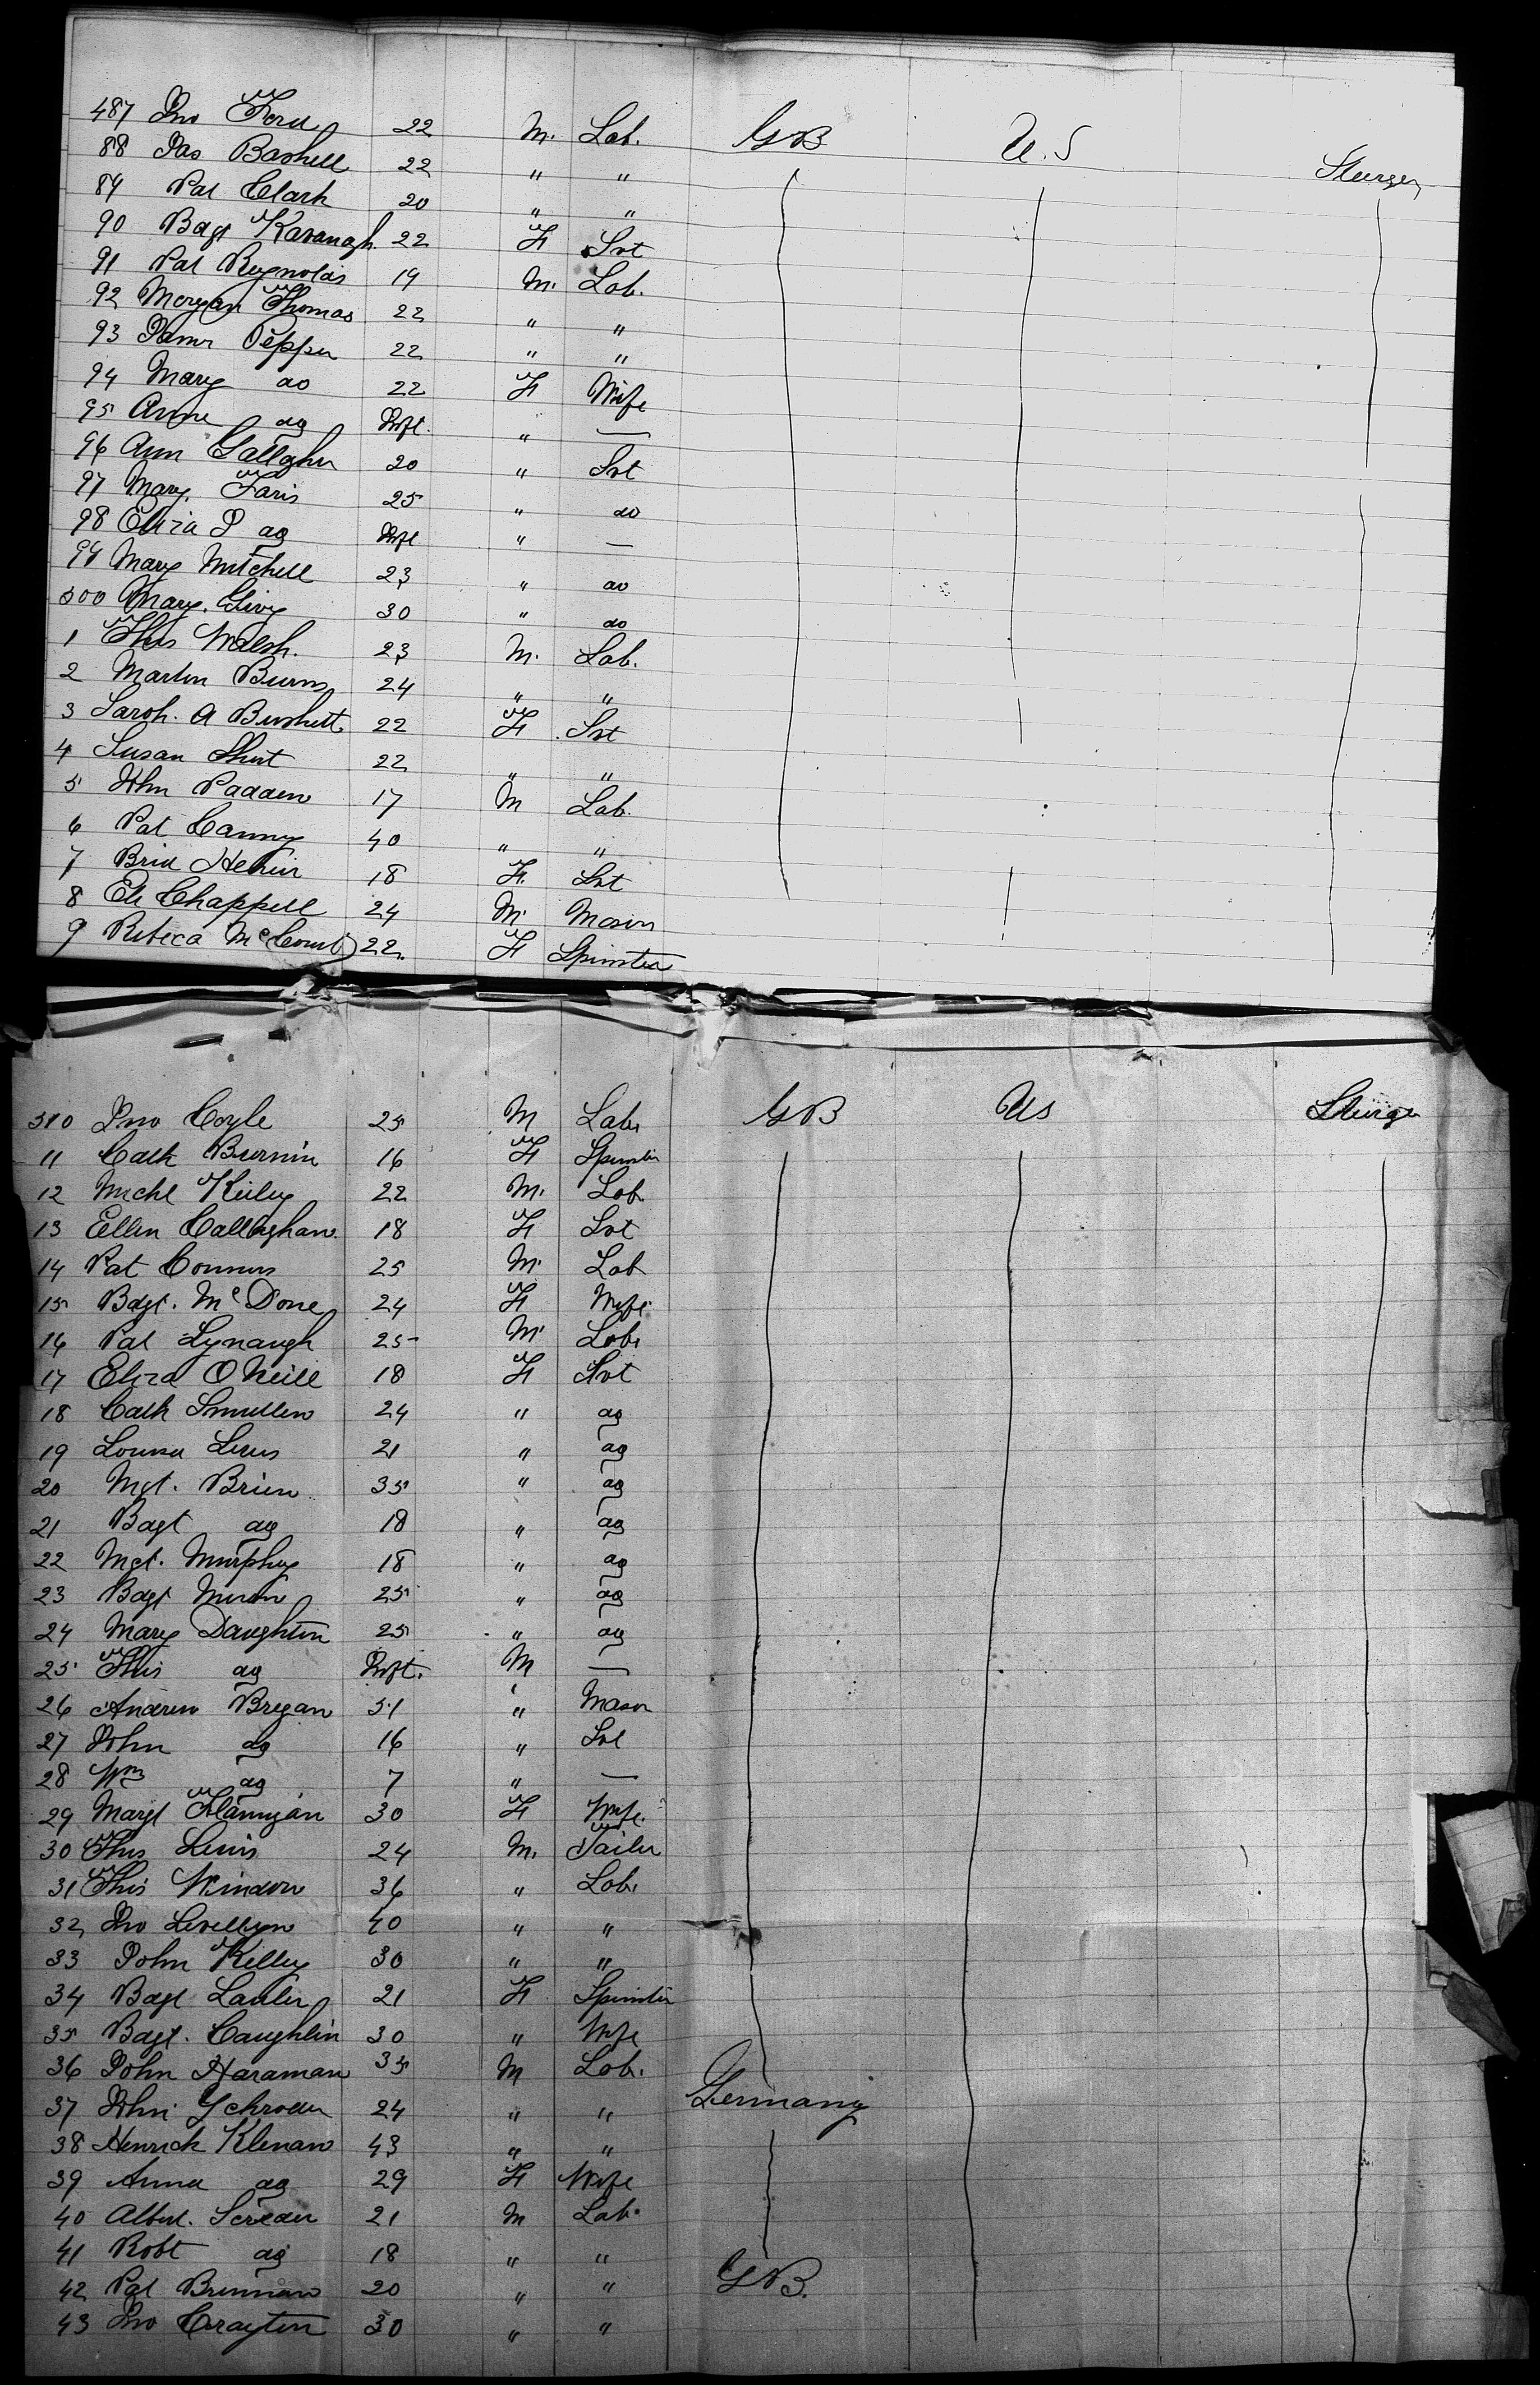 487 Jno Ford 22 M. Lab. GB U.S Steerage
88 Jas Bashell 22 " "
89 Pat Clark 20 " "
90 Bdgt Kavanagh 22 F Svt
91 Pat Reynolds 19 M. Lab.
92 Morgan Thomas 22 " "
93 James Pepper 22 " "
94 Mary do 22 F Wife
95 Anne do Inft. " —
96 Ann Gallagher 20 " Svt
97 Mary Faris 25 " do
98 Eliza J do Inft " —
99 Mary Mitchell 23 " do
500 Mary 30 " do
1 Thos Walsh. 23 M. Lab.
2 Martin Burns 24 " "
3 Sarah. A Bushett 22 F Svt
4 Susan Shut 22 " "
5 John Padden 17 M Lab.
6 Pat Canny 40 " "
7 Brid 18 F. Svt
8 Eli Chappell 24 M. Mason
9 Rebeca McCourt 22. F Spinster
510 Jno Coyle 25 M Labr GB US Steerage
11 Cath 16 F Spinster
12 Michl Keiley 22 M. Lab.
13 Ellen Callaghan. 18 F Svt
14 Pat Connors 25 M. Lab
15 Bdgt. McDone 24 F Wife
16 Pat Lynaugh 25 M. Labr
17 Eliza O Neill 18 F Svt
18 Cath Smullen 24 " do
19 Louisa 21 " do
20 Mgt. Brien 35 " do
21 Bdgt do 18 " do
22 Mgt. Murphy 18 " do
23 Bdgt 25 " do
24 Mary Daughton 25 " do
25 Thos do Inft. M —
26 Andrew Bregan 51 " Mason
27 John do 16 " Svt
28 Wm do 7 " —
29 Margt Flannigan 30 F Wife.
30 Thos Lewis 24 M. Tailor
31 Thos Windon 36 " Lab.
32 Jno Levellyn 40 " "
33 John Kelley 30 " "
34 Bdgt Lawler 21 F Spinster
35 Bdgt. Caughlin 30 " Wife
36 John Haraman 35 M Lab.
37 John Schroeder 24 " " Germany
38 Henrich Klenaw 43 " "
39 Anna do 29 F Wife
40 Albert. 21 M Lab.
41 Robt do 18 " "
42 Pat Brennan 20 " " GB.
43 Jno Crayton 30 " "